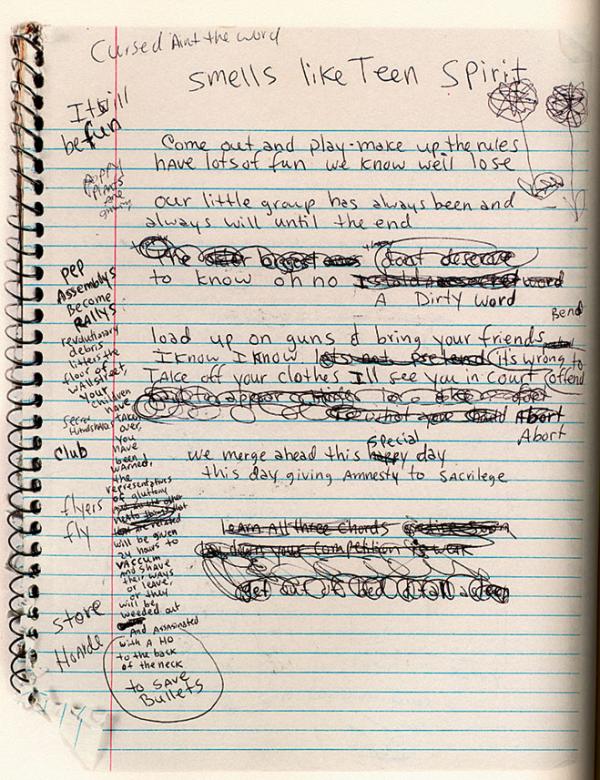 Cursed Aint the word
smells like Teen Spirit
It will
be fun
Come out and play-make up the rules
have lots of fun we know we'll lose
our little group has always been and
always will until the end
the
dont deserve
to know oh no word
A Dirty word
Bend
load up on guns & bring your friends
I know I know lets not pretend it's wrong to
offend
TAke off your clothes I'll see you in court
Abort
Abort
Special
we merge ahead this happy day
this day giving Amnesty to sacrilege
learn All three Chords
lay down your competition is weak
get out of bed & fall asleep
poppy
plants
are
pep
Assemblys
Become
RAllys
revolutionary
debris
litters the
floor of
wallstreet,
your
children
have
secret
Handshake
taken
over,
you
have
been
warned,
the
representatives
of gluttony
will be given
24 hours to
vaccum
and shave
their ways
or leave,
or they
will be
weeded out
And Assasinated
with A Ho
to the back
of the neck
to save
Bullets
club
flyers
fly
store
Hoarde